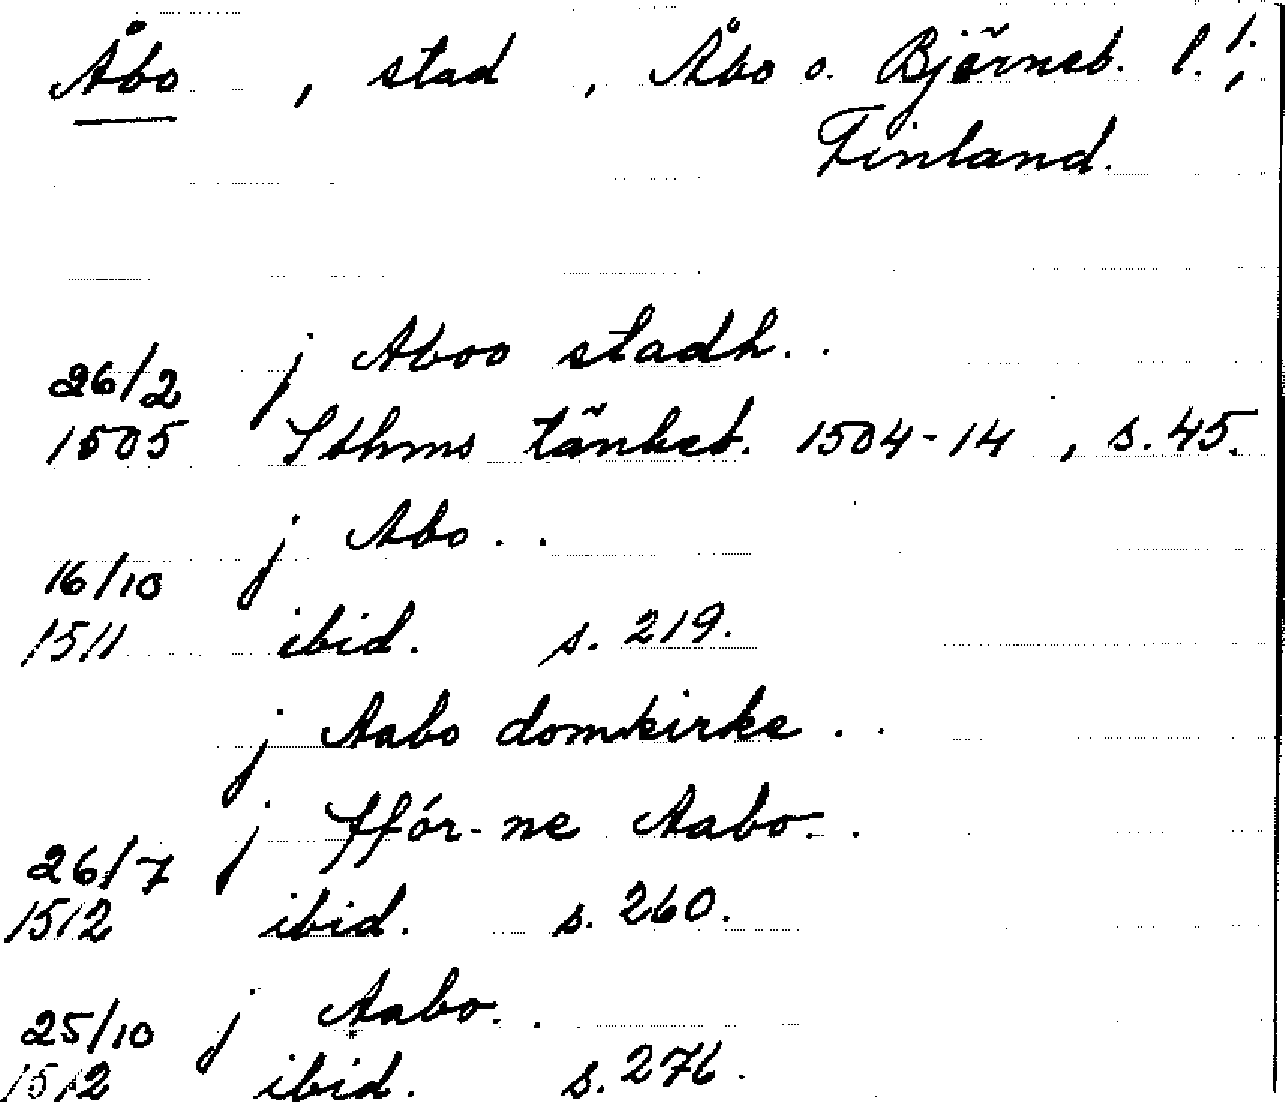 Åbo, stad, Åbo o. Björneb. l. 1.,
Finland.
j Aboo stadh..
26/2
1505 Sthms tänkeb. 1504-14, s. 45.
j Abo..
16/10
1511 ibid. s. 219.
j Aabo domkirke..
j ffór-ne Aabo..
26/7
1512 ibid. s. 260.
25/10 j Aabo..
1512 ibid. s. 276.